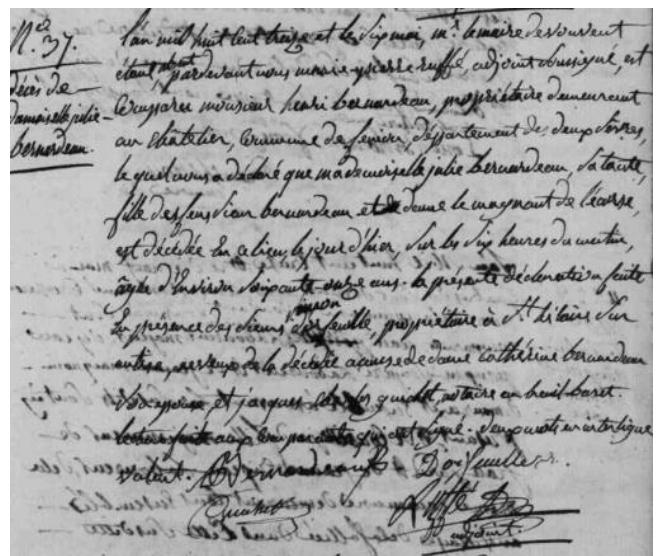 N.° 37.
décès de
damoiselle julie
bernardeau.
l'an mil huit cent treize et le dix mai, m.r le maire de vouvent
étant absent, pardevant nous marie-pierre ruffé, adjoint soussigné, est
comparu monsieur henri bernardeau, propriétaire demeurant
au châtelier, commune de fenioux, département des deux sèvres,
le quel nous a déclaré que mademoiselle julie bernardeau, sa tante,
fille des feus sieur bernardeau et de dame le magnant de l'écorse,
est décédée en ce lieu, le jour d'hier, sur les dix heures du matin,
âgée d'environ soixante-onze ans. la présente déclaration faite
en présence des sieurs simon doisfeuille, propriétaire à st. hilaire sur
autise, neveux de la décédée à cause de dame cathérine bernardeau
son épouse, et jacques charles guichet, notaire au breuil-baret.
lecture faite aux comparants qui ont signé. deux mots en interligne
valent. Bernardeau fs Doisfeuille
Guichet ruffé
adjoint.